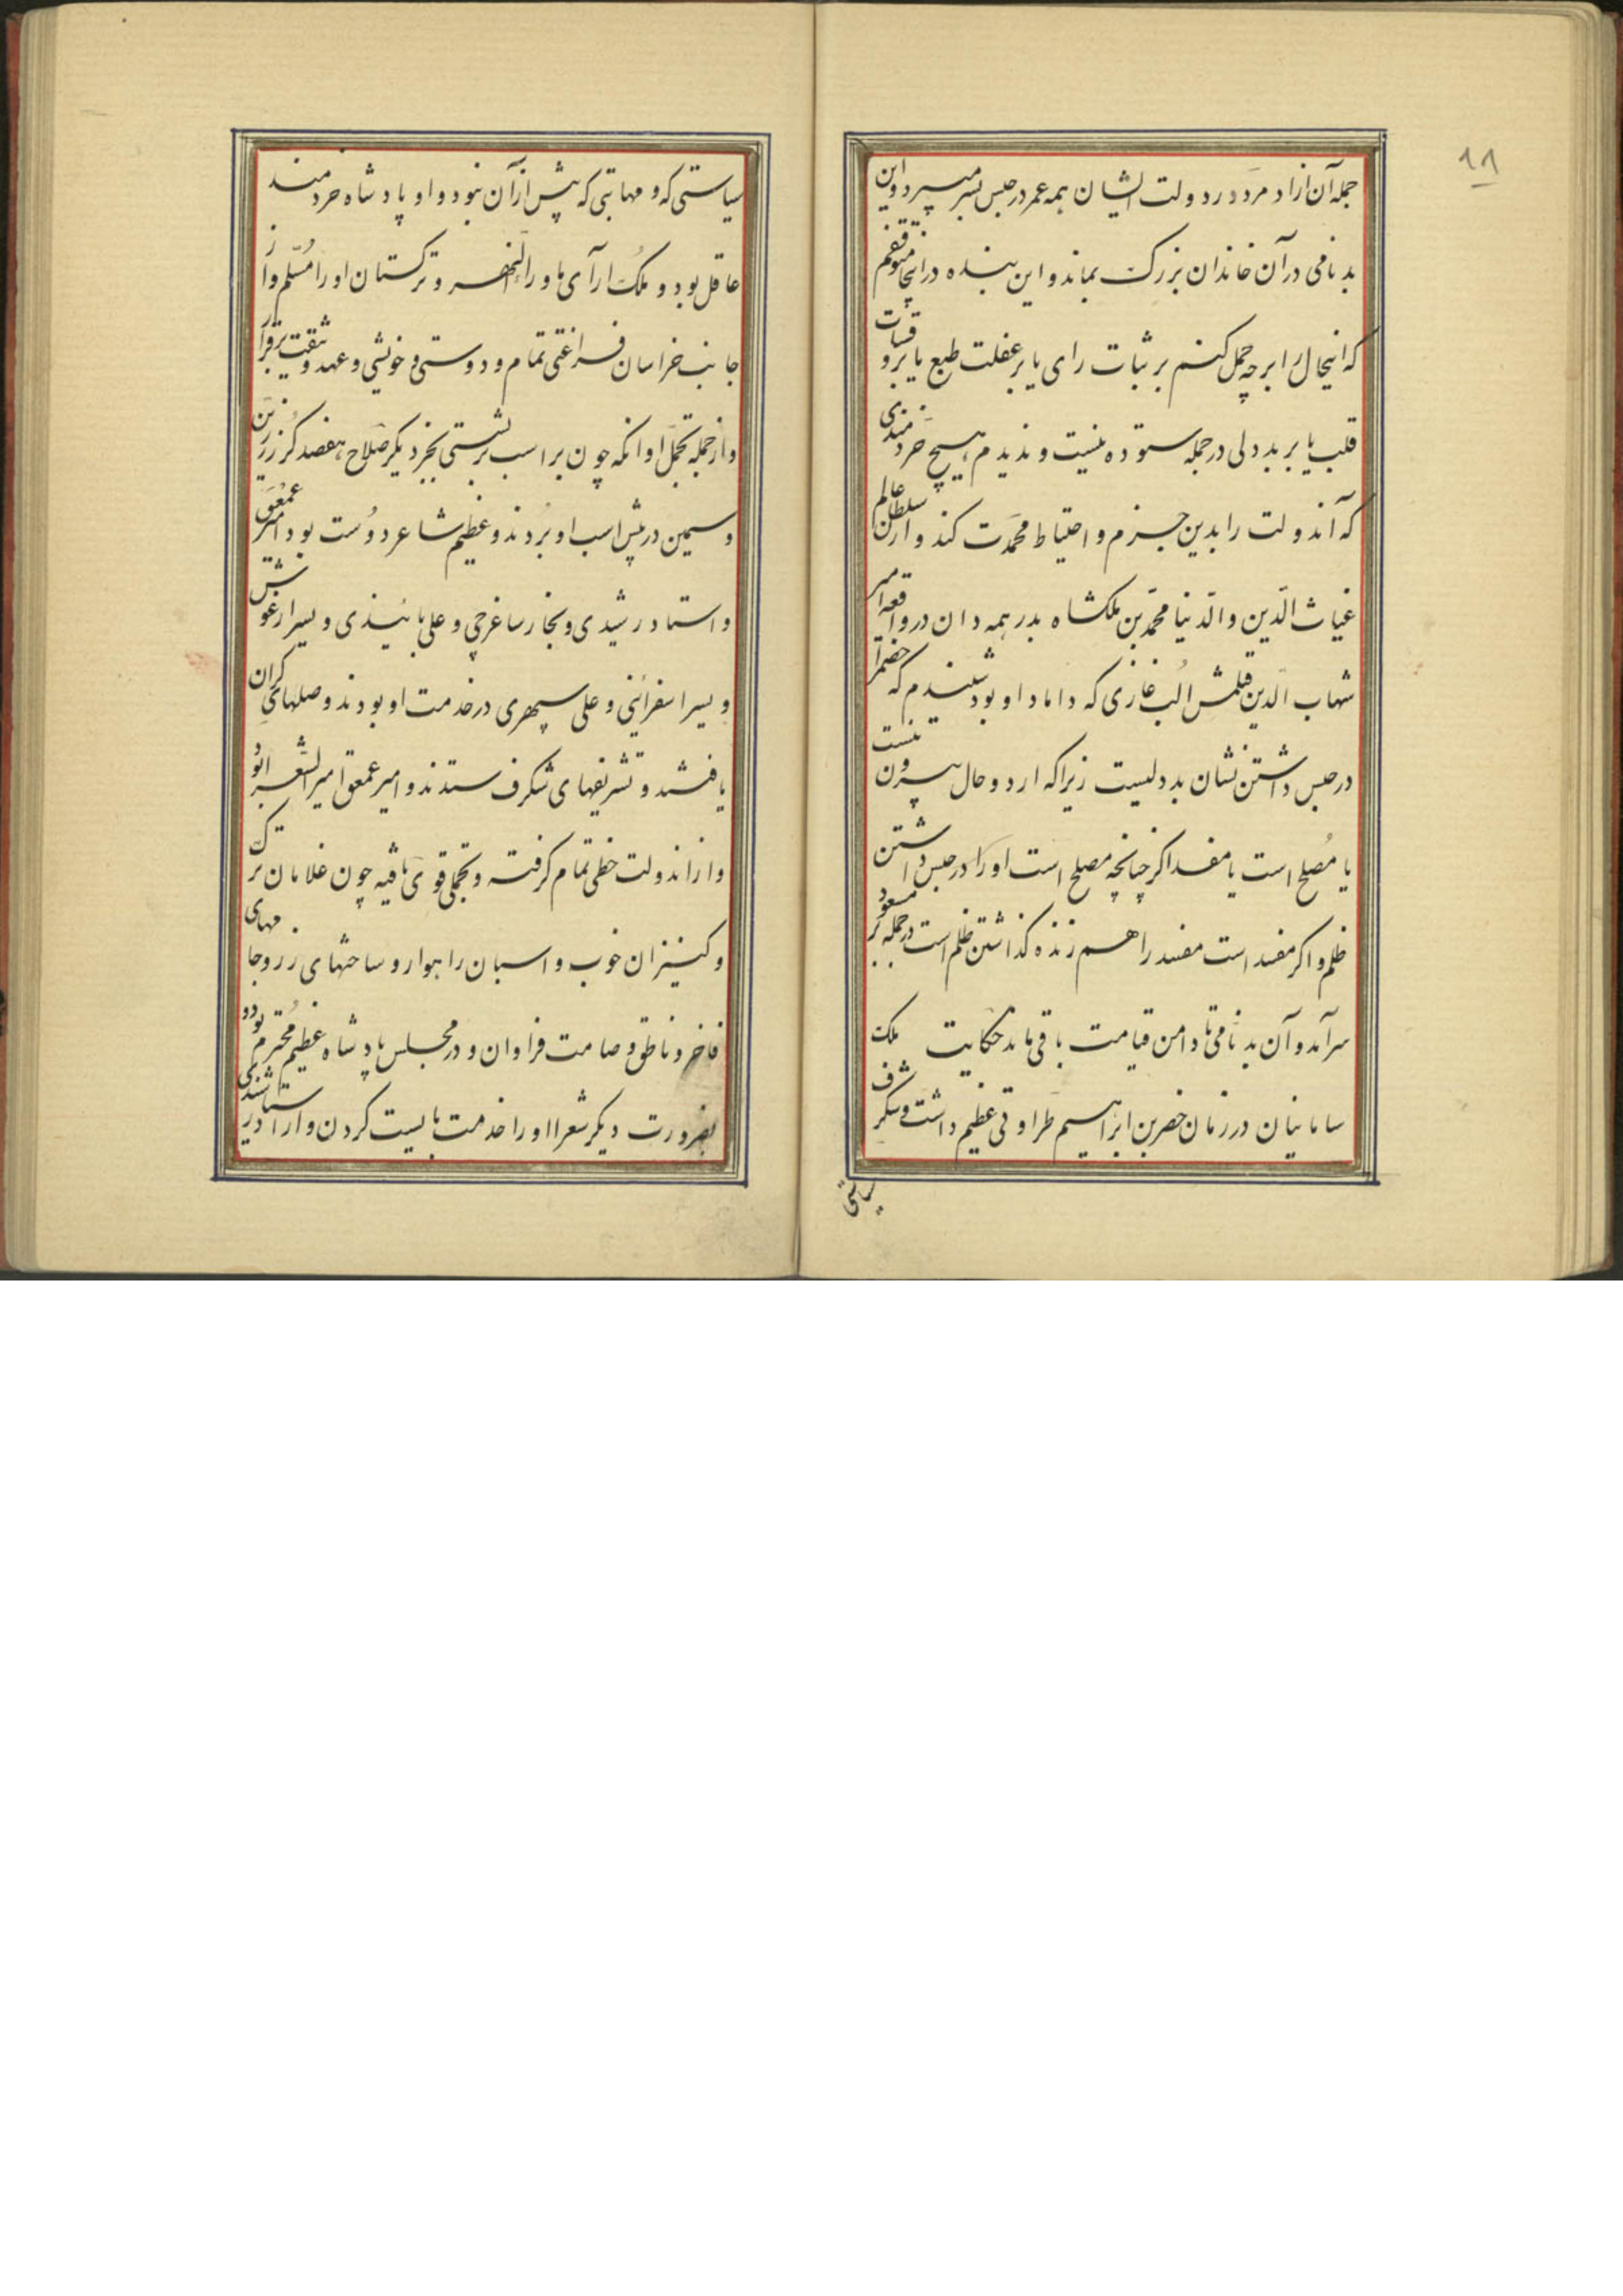 ۱۸
جمله آن آزاد مرد در دولت ایشان همه عمر در حبس بسر میبرد و این
بدنامی در آن خاندان بزرگ بماند و این بنده در اینجا متوقفم
که اینحال را بر چه حمل کنم بر ثبات رای یا بر غفلت طبع یا بر قساوت
قلب یا بر بددلی در جمله ستوده نیست و ندیدم هیچ خردمندی
که آندولت را بدین حزم و احتیاط محمدت کند و از سلطان عالم
غیاث الدین و الدنیا محمد بن ملکشاه بدر همدان در واقعه امیر
شهاب الدین قلمش الب غازی که داماد او بود شنیدم که خضم را
در حبس داشتن نشان بددلیست زیرا که از دو حال بیرون نیست
یا مصلح است یا مفسد اکر چنانچه مصلح است او را در حبس داشتن
ظلم و اکر مفسد است مفسد را هم زنده کذاشتن ظلم است در جمله بر مسعود
سرآمد و آن بدنامی تا دامن قیامت باقی ماند حکایت ملک
سامانیان در زمان خضر بن ابراهیم طراوتی عظیم داشت و شکرف
سیاستی
سیاستی که و مهابتی که پیش از آن نبود و او پادشاه خردمند
عاقل بود و ملک آرای ماوراءالنهر و ترکستان او را مسلم و از
جانب خراسان فراغتی تمام و دوستی و خویشی و عهد و ثیقت برقرار
و از جمله تجمل او انکه چون بر اسب برنشستی بجز دیکر صلاح هفصد کرز زرین
و سیمین در پیش اسب او بردند و عظیم شاعر دوست بود امیر عمعق
و استاد رشیدی و نجار ساغرجی و علی بانیذی و پسر ارغوش
و پسر اسفراینی و علی سپهری در خدمت او بودند و صلهای کران
یافتند و تشریفهای شکرف ستدند و امیر عمعق امیر الشعرا بود
و از اندولت حظی تمام کرفته و تجملی قوی یافته چون غلامان ترک
و کنیزان خوب و اسبان راهوار و ساختهای زر و جامهای
فاخر و ناطق و صامت فراوان و در مجلس پادشاه عظیم محترم بود و
بضرورت دیکر شعرا او را خدمت بایست کردن و از استاد رشیدی